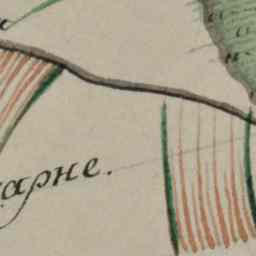 арне.